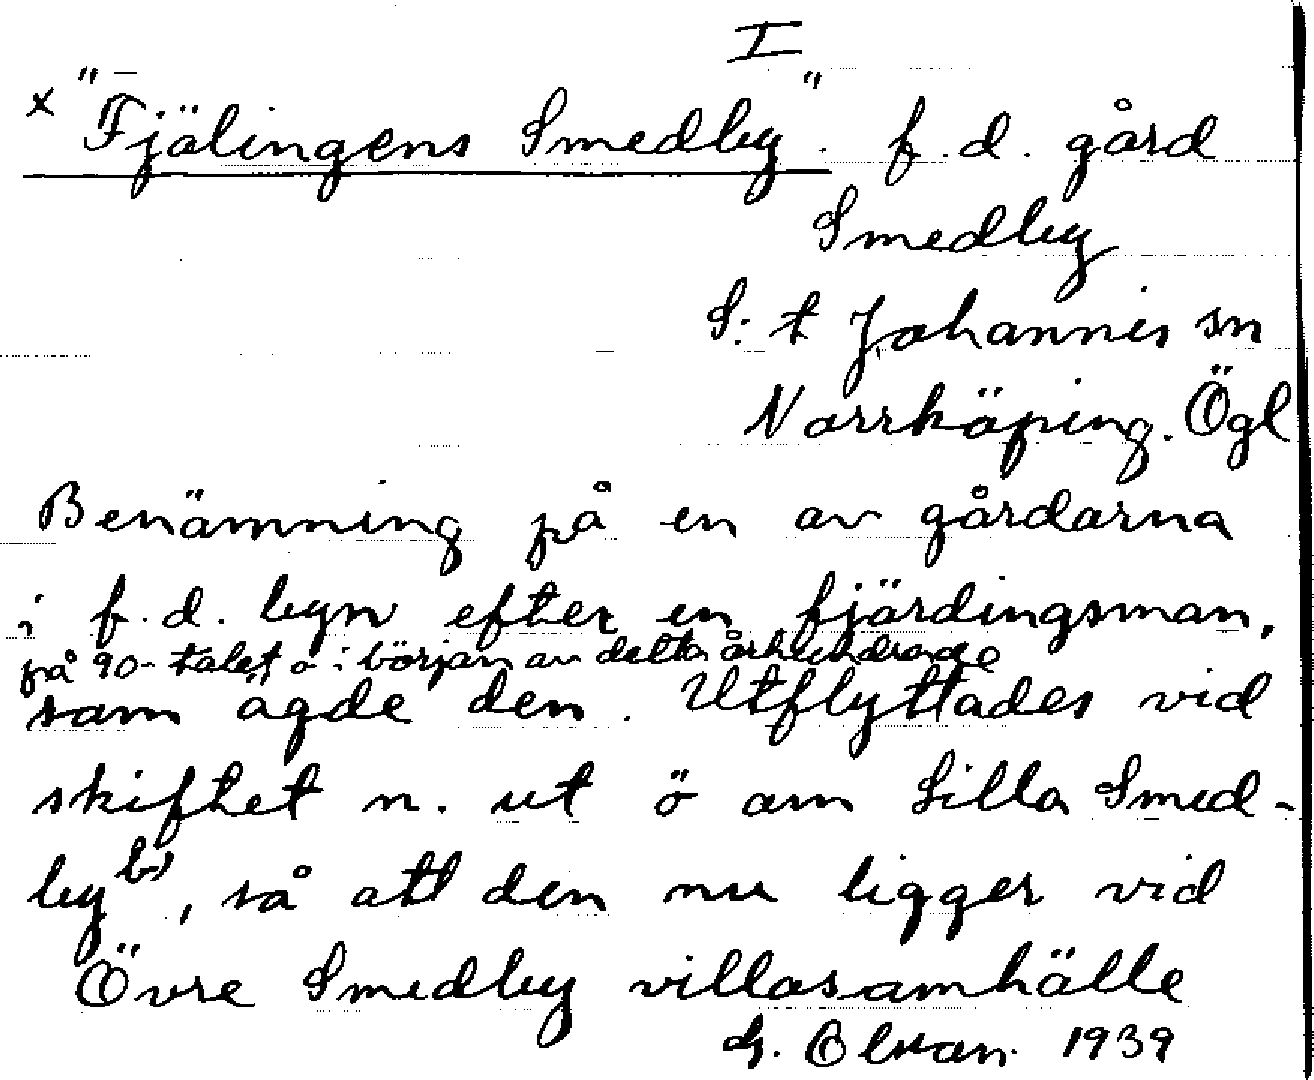 I
x "Fjälingens Smedby". f.d. gård
Smedby
S:t Johannis sn
Norrköping. Ögl
Benämning på en av gårdarna
i f.d. byn efter en fjärdingsman,
på 90-talet o i början av detta århundrade
som ägde den. Utflyttades vid
skiftet n. ut ö om Lilla Smed-
by b), så att den nu ligger vid
Övre Smedby villasamhälle
G. 1939